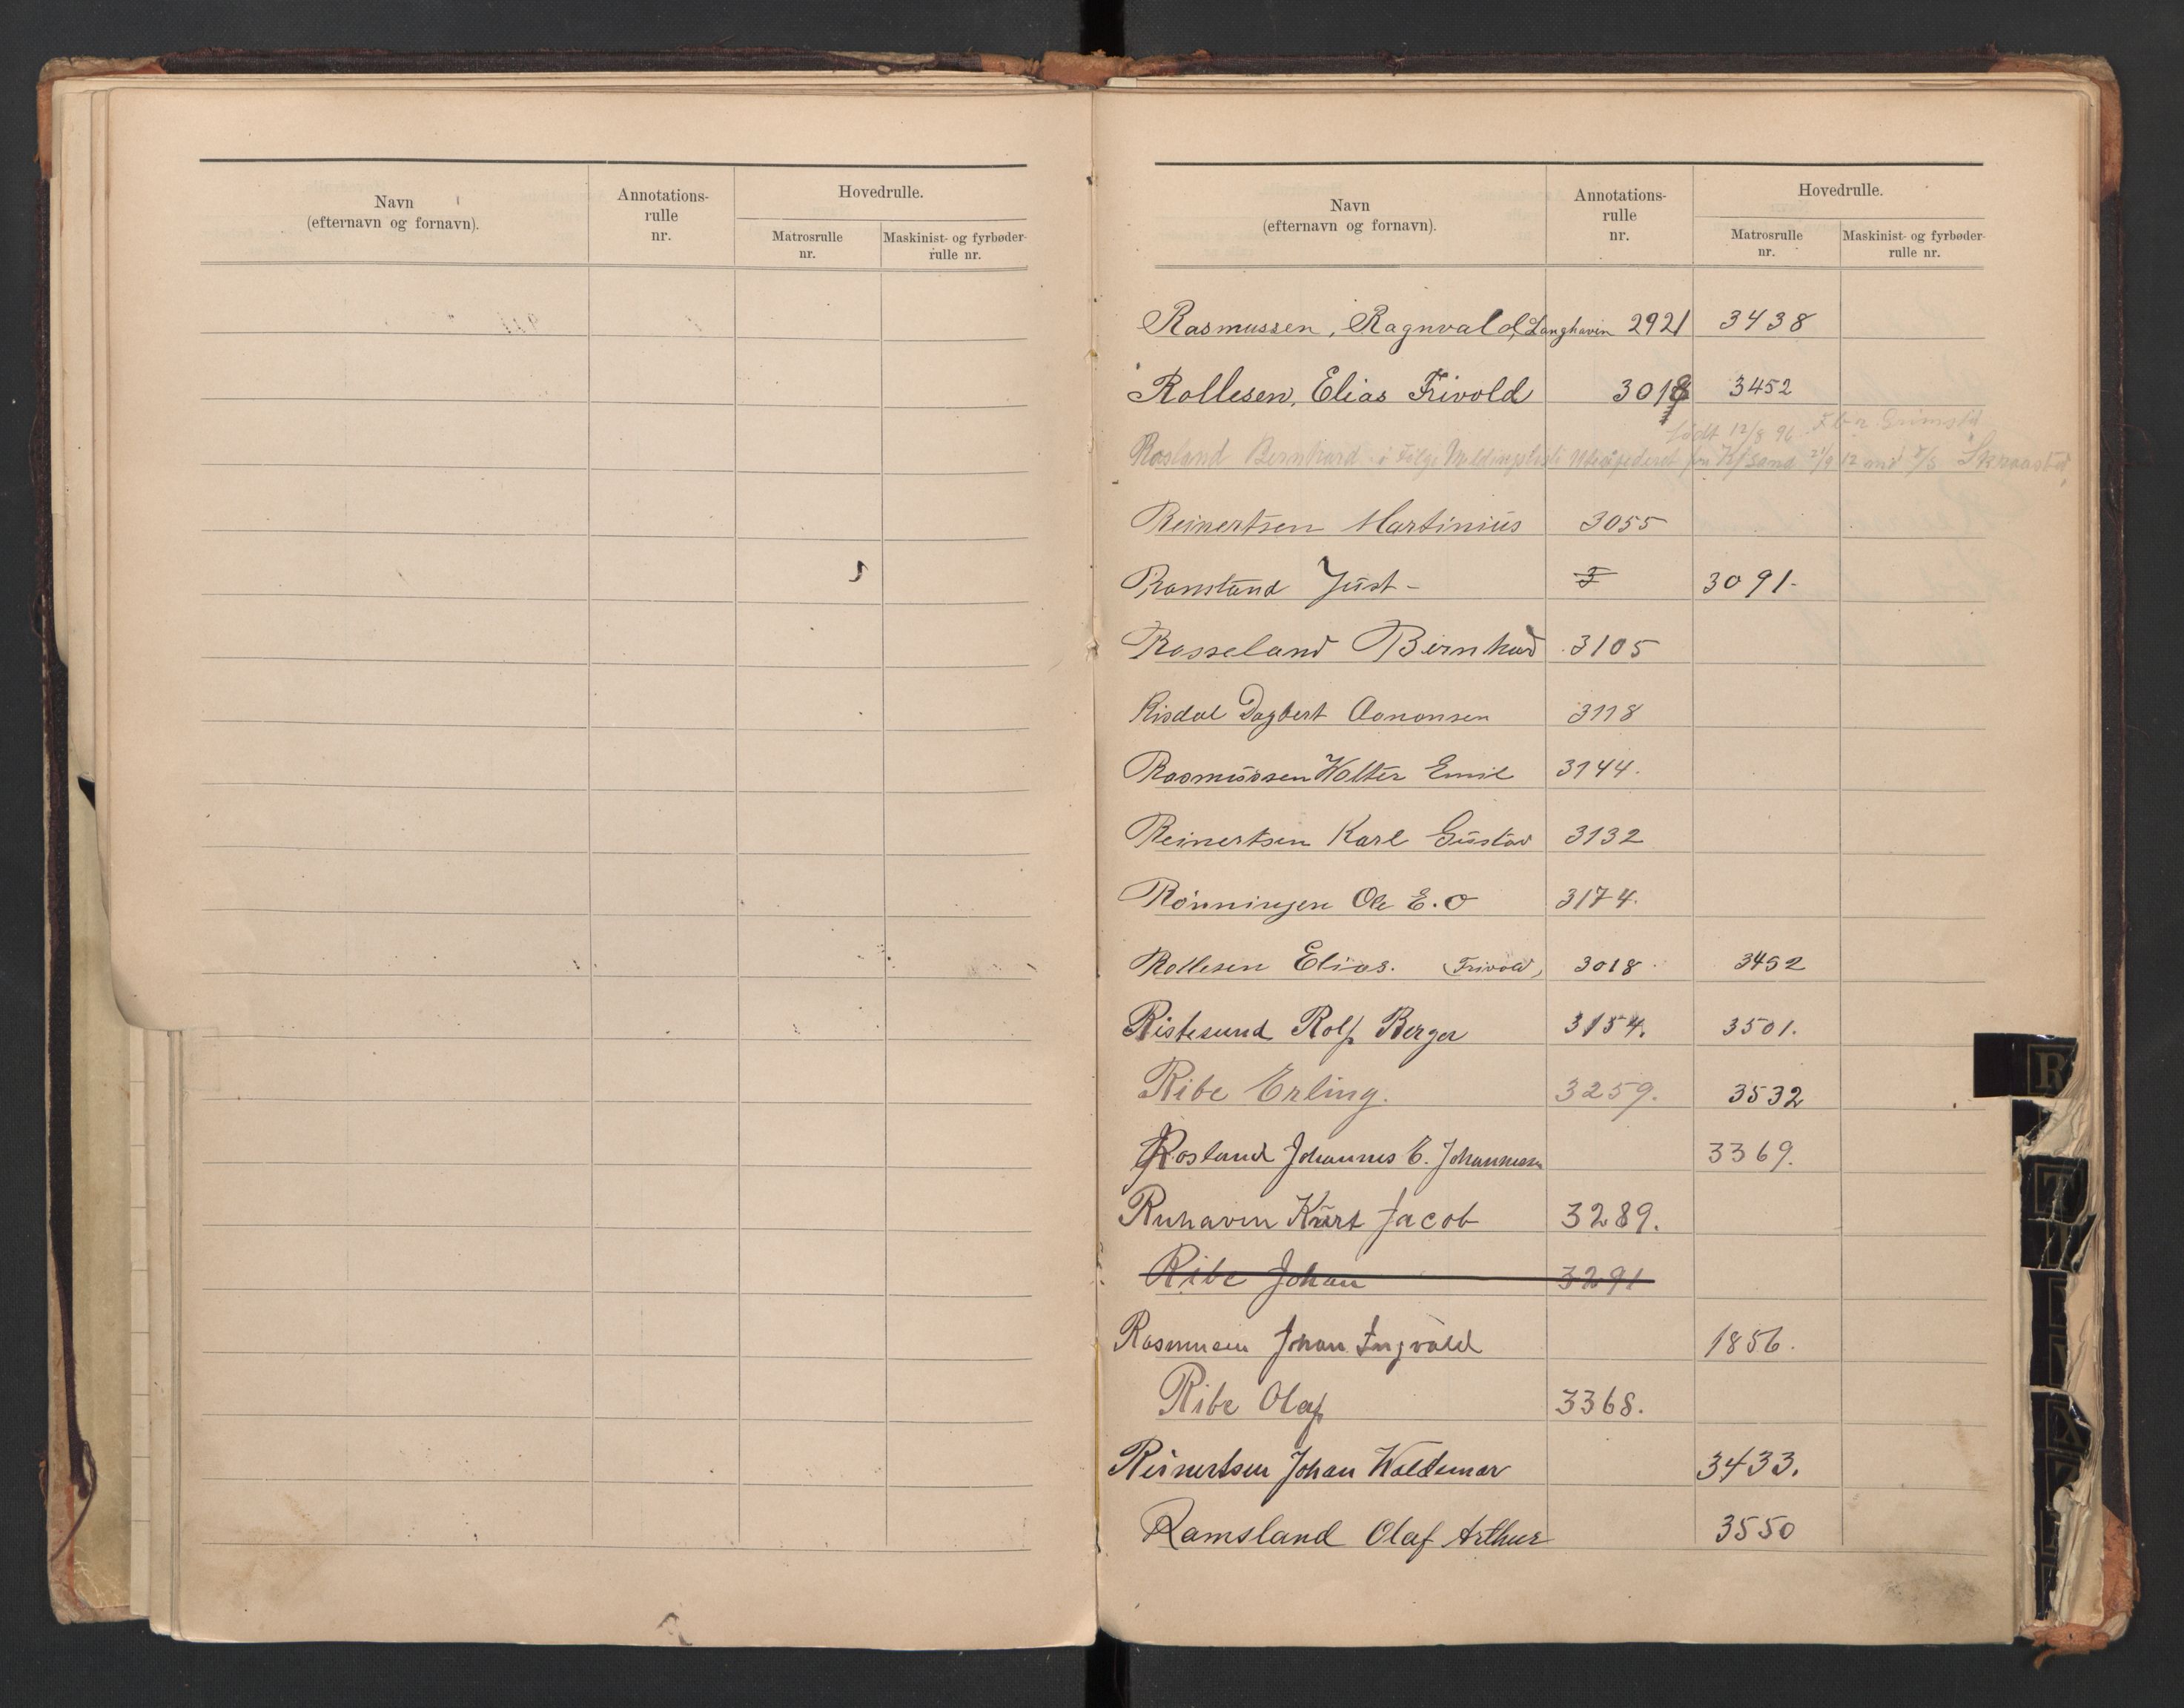 Navn
(efternavn og fornavn).
Annotations-
rulle
nr.
Hovedrulle.
Matrosrulle
nr.
Maskinist- og fyrbøder-
rulle nr.
Navn
(efternavn og fornavn).
Annotations-
rulle
nr.
Hovedrulle.
Matrosrulle
nr.
Maskinist- og fyrbøder-
rulle nr.
Rasmussen, Ragnvald, Langhavin 2921 3438
Rollesen, Elias Frivold 3018 3452
født 12/8 96 Grimstd
Rosland Bernhard i Følge fra K/sand 21/9 12 med
Reinertsen Martinius 3055
Just - 3091-
Rosseland Bernhard 3105
Risdal Dagbert Aanonsen 3118
Rasmussen Walter Emil 3144.
Reinertsen Karl Gustav 3132
Rønningen Ole E. O 3174.
Rollesen Elias. (Frivold) 3018 3452
Ristesund Rolf Berger 3154. 3501.
Ribe Erling. 3259. 3532
Rosland Johannes E. Johannesen 3369.
Ruhaven Kurt Jacob 3289.
Ribe Johan 3291
Rasmusen Johan Ingvald 1856.
Ribe Olaf 3368.
Reinertsen Johan Waldemar 3433.
Ramsland Olaf Arthur 3550
R
T
X